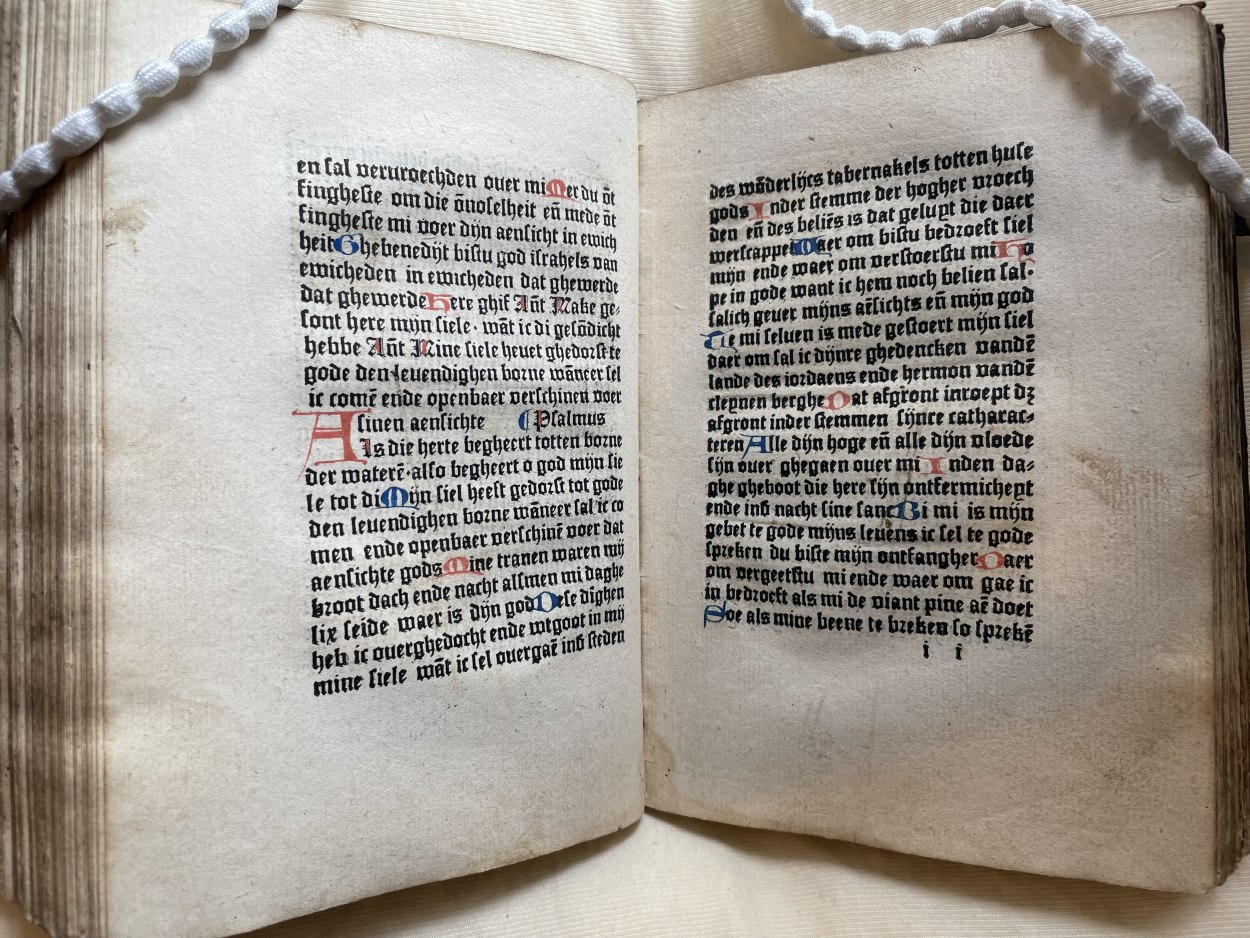 en sal veruroechden ouer mi Mer du ōt
finghefte om die ōnoselheit eñ mede ōt
finghefte mi voer dijn aensicht in ewich
heit Ghebenedijt bistu god israhels van
ewicheden in ewicheden dat ghewerde
dat ghewerde Here ghif Añt Make ge⸗
sont here mijn siele· wāt ic di gesōdicht
hebbe Añt Mine siele heuet ghedorst te
gode den leuendighen borne wāneer sel
ic comē ende openbaer verschinen voer
A sinen aensichte Psalmus
ls die herte begheert totten borne
der waterē·also begheert o god mijn sie
le tot di Mijn siel heeft gedorst tot gode
den leuendighen borne wāneer sal ic co
men ende openbaer verschinē voer dat
aensichte gods Mine tranen waren mij
broot dach ende nacht alsmen mi daghe
lix seide waer is dijn god Dese dighen
heb ic ouerghedocht ende wtgoot in mij
mine siele wāt ic sel ouergaē inb steden
des wāderlijcs tabernakels totten huse
gods Inder stemme der hogher vroech
den eñ des beliēs is dat geluyt die daer
werscappet Waer om bistu bedroeft siel
mijn ende waer om verstoerstu mi Ho
pe in gode want ic hem noch belien sal·
salich geuer mijns aēsichts eñ mijn god
Te mi seluen is mede gestoert mijn siel
daer om sal ic dijnre ghedencken vandē
lande des iordaens ende hermon vandē
cleynen berghe Dat afgront inroept dz
afgront inder stemmen sijnre catharac⸗
teren Alle dijn hoge eñ alle dijn vloede
sijn ouer ghegaen ouer mi Inden da⸗
ghe gheboot die here sijn ontfermicheyt
ende inb nacht sine sanc Bi mi is mijn
gebet te gode mijns leuens ic sel te gode
spreken du biste mijn ontfangher Waer
om vergeetstu mi ende waer om gae ic
in bedroeft als mi de viant pine aē doet
Soe als mine beene te breken so sprekē
i i